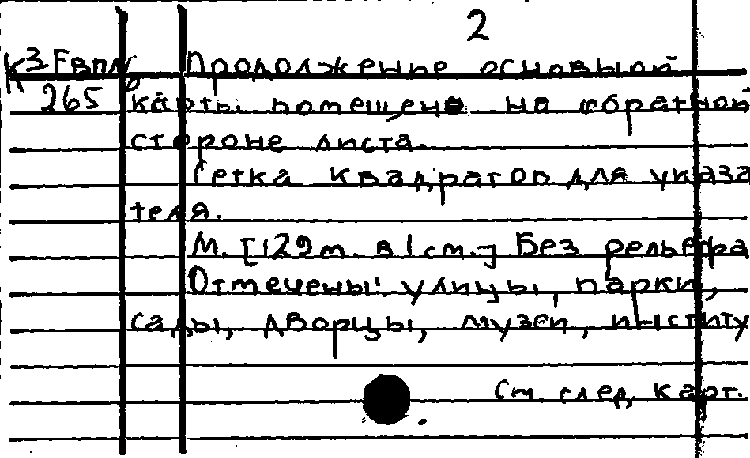 2
К3Евпл Продолжение основной
265 карты помещено на обратной
стороне листа.
Сетка квадратов для указа
теля.
М. [129м. в 1см.] Без рельефа
Отмечены: улицы, парки,
сады, дворцы, музеи, институ
См. след. карт.